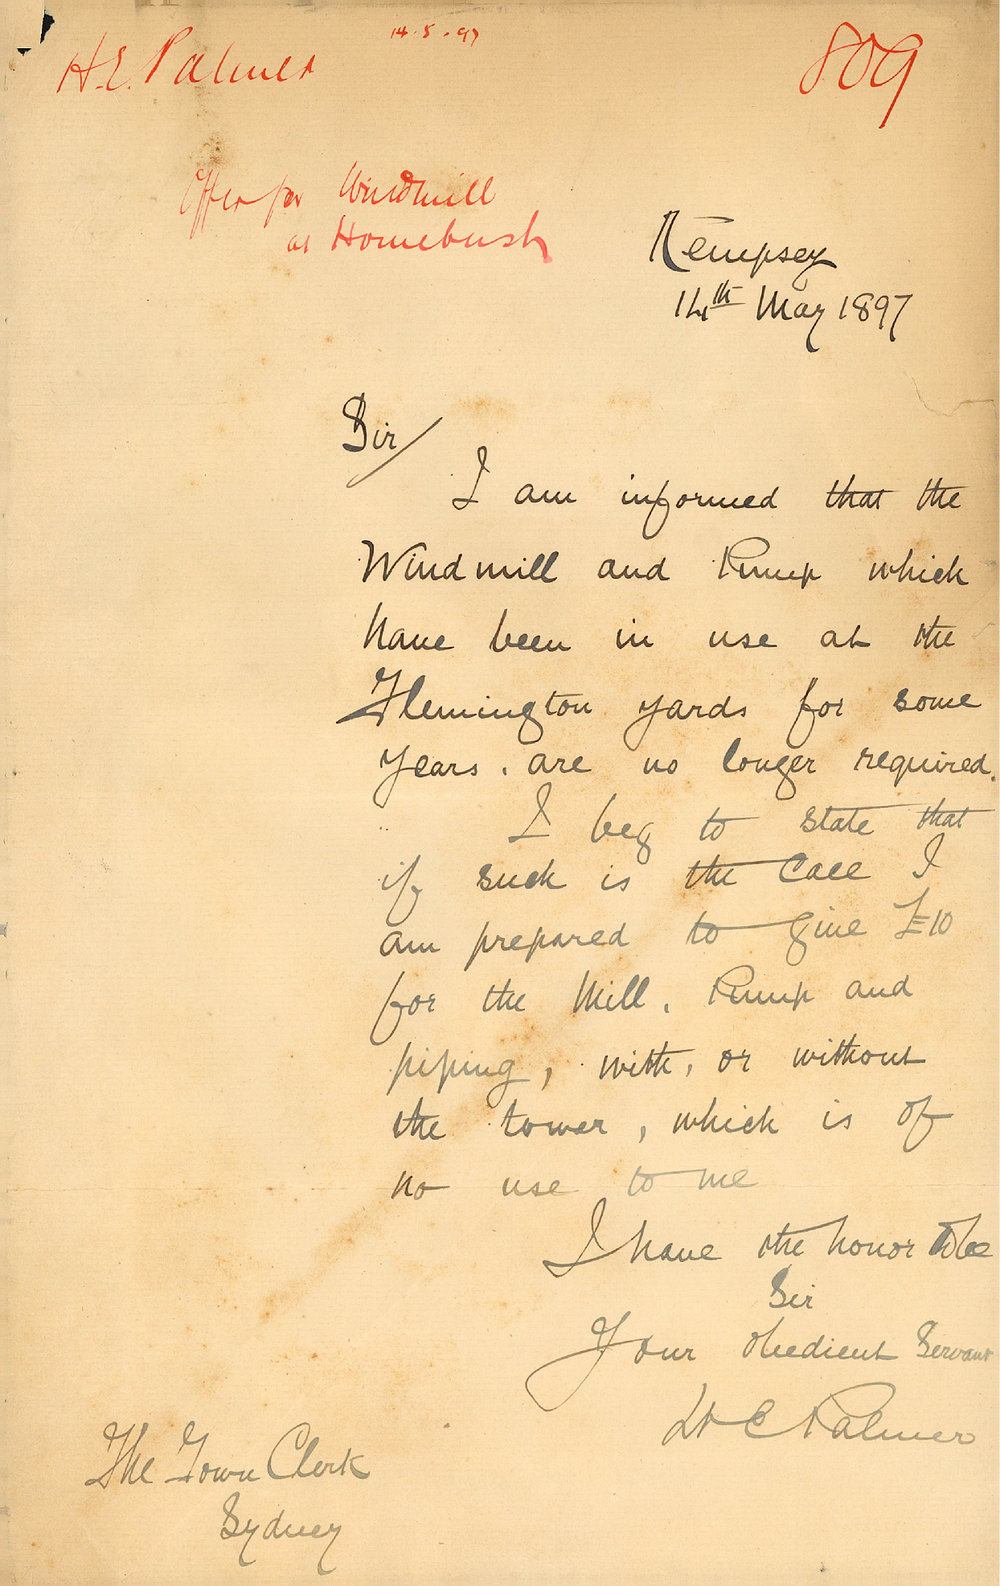 14.5.97
H.E. Palmer
809
Offer for Windmill
at Homebush
Kempsey
14th May 1897
Sir/
I am informed that the
Windmill and Pump which
have been in use at the
Flemington yards for some
years. are no longer required.
I beg to state that
if such is the case I
am prepared to give £10
for the Mill. Pump and
piping, with, or without
the tower, which is of
no use to me
I have the honor to be
Sir
Your obedient Servant
H E Palmer
The Town Clerk
Sydney